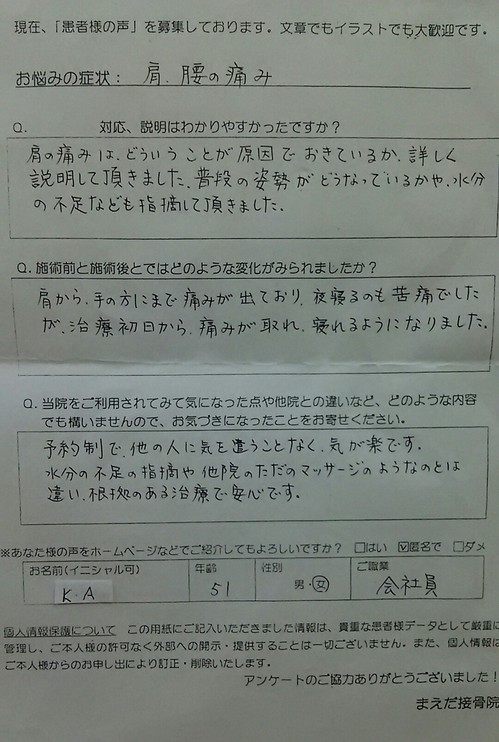 現在、「患者様の声」を募集しております。文章でもイラストでも大歓迎です。
お悩みの症状： 肩、腰の痛み
Q. 対応、説明はわかりやすかったですか？
肩の痛みは、どういうことが原因でおきているか、詳しく
説明して頂きました、普段の姿勢がどうなっているかや、水分
の不足なども指摘して頂きました。
Q. 施術前と施術後とではどのような変化がみられましたか？
肩から、手の方にまで痛みが出ており、夜寝るのも苦痛でした
が、治療初日から、痛みが取れ、寝れるようになりました。
Q. 当院をご利用されてみて気になった点や他院との違いなど、どのような内容
でも構いませんので、お気づきになったことをお寄せください。
予約制で、他の人に気を遣うことなく、気が楽です。
水分の不足の指摘や他院のただのマッサージのようなのとは
違い、根拠のある治療で安心です。
※あなた様の声をホームページなどでご紹介してもよろしいですか？ □はい ☑匿名で □ダメ
お名前(イニシャル可) 年齢 性別 ご職業
K.A 51 男・女 会社員
個人情報保護について この用紙にご記入いただきました情報は、貴重な患者様データとして厳重に
管理し、ご本人様の許可なく外部への開示・提供することは一切ございません。また、個人情報は
ご本人様からのお申し出により訂正・削除いたします。
アンケートのご協力ありがとうございました！
まえだ接骨院